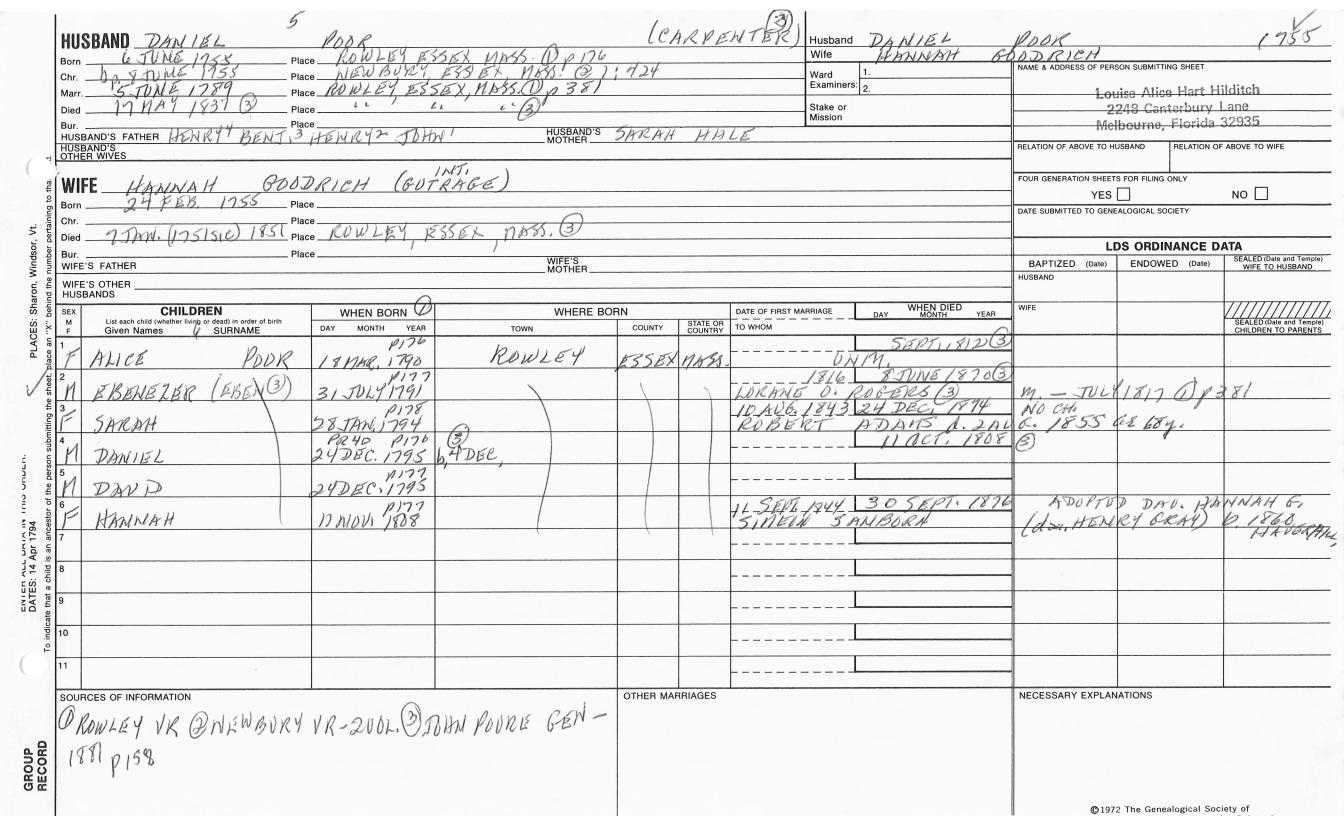 5
HUSBAND DANIEL POOR (CARPENTER) ③
Born 6 JUNE 1755 Place ROWLEY ESSEX MASS. ① p176
Chr. bp. 8 JUNE 1755 Place NEWBURY ESSEX, MASS. ② 1:424
Marr. 5 JUNE 1789 Place ROWLEY, ESSEX, MASS. ① p381
Died 17 MAY 1837 ③ Place " " " ③
Bur. Place
HUSBAND'S FATHER HENRY⁴ BENJ.³ HENRY² JOHN¹ HUSBAND'S MOTHER SARAH HALE
HUSBAND'S OTHER WIVES
WIFE HANNAH GOODRICH (GUTRAGE) INT.
Born 24 FEB. 1755 Place
Chr. Place
Died 7 JAN. (1751 SIC) 1851 Place ROWLEY, ESSEX, MASS. ③
Bur. Place
WIFE'S FATHER WIFE'S MOTHER
WIFE'S OTHER HUSBANDS
Husband DANIEL POOR 1755
Wife HANNAH GOODRICH
Ward Examiners: 1. 2.
Stake or Mission
NAME & ADDRESS OF PERSON SUBMITTING SHEET
Louise Alice Hart Hilditch
2248 Canterbury Lane
Melbourne, Florida 32935
RELATION OF ABOVE TO HUSBAND RELATION OF ABOVE TO WIFE
FOUR GENERATION SHEETS FOR FILING ONLY
YES NO
DATE SUBMITTED TO GENEALOGICAL SOCIETY
LDS ORDINANCE DATA
BAPTIZED (Date) ENDOWED (Date) SEALED (Date and Temple) WIFE TO HUSBAND
HUSBAND
WIFE
SEALED (Date and Temple) CHILDREN TO PARENTS
SEX M F CHILDREN WHEN BORN ① WHERE BORN DATE OF FIRST MARRIAGE WHEN DIED
List each child (whether living or dead) in order of birth
Given Names SURNAME DAY MONTH YEAR TOWN COUNTY STATE OR COUNTRY TO WHOM DAY MONTH YEAR
p176 SEPT. 1812 ③
1 F ALICE POOR 18 MAR. 1790 ROWLEY ESSEX MASS. UNM.
p177 1816 8 JUNE 1870 ③
2 M EBENEZER (EBEN ③) 31 JULY 1791 LORANE O. ROGERS ③ m. — JULY 1817 ① p381
p178 10 AUG. 1843 24 DEC. 1894 NO CH.
3 F SARAH 28 JAN. 1794 ROBERT ADAMS d. 2 AUG. 1855 ae 68y.
PR40 p176 ③ 11 OCT. 1808 ③
4 M DANIEL 24 DEC. 1795 b. 4 DEC.
p177
5 M DAVID 24 DEC. 1795
p177 11 SEPT. 1844 30 SEPT. 1876 ADOPTED DAU. HANNAH E.
6 F HANNAH 17 NOV. 1808 SIMEON SANBORN (dau. HENRY GRAY) b. 1860 HAVERHILL
7
8
9
10
11
SOURCES OF INFORMATION OTHER MARRIAGES NECESSARY EXPLANATIONS
① ROWLEY VR ② NEWBURY VR-2VOL. ③ JOHN POORE GEN—
1881 p158
©1972 The Genealogical Society of
PLACES: Sharon, Windsor, Vt.
ENTER ALL DATA IN THIS ORDER:
DATES: 14 Apr 1794
To indicate that a child is an ancestor of the person submitting the sheet, place an "X" behind the number pertaining to tha
GROUP RECORD